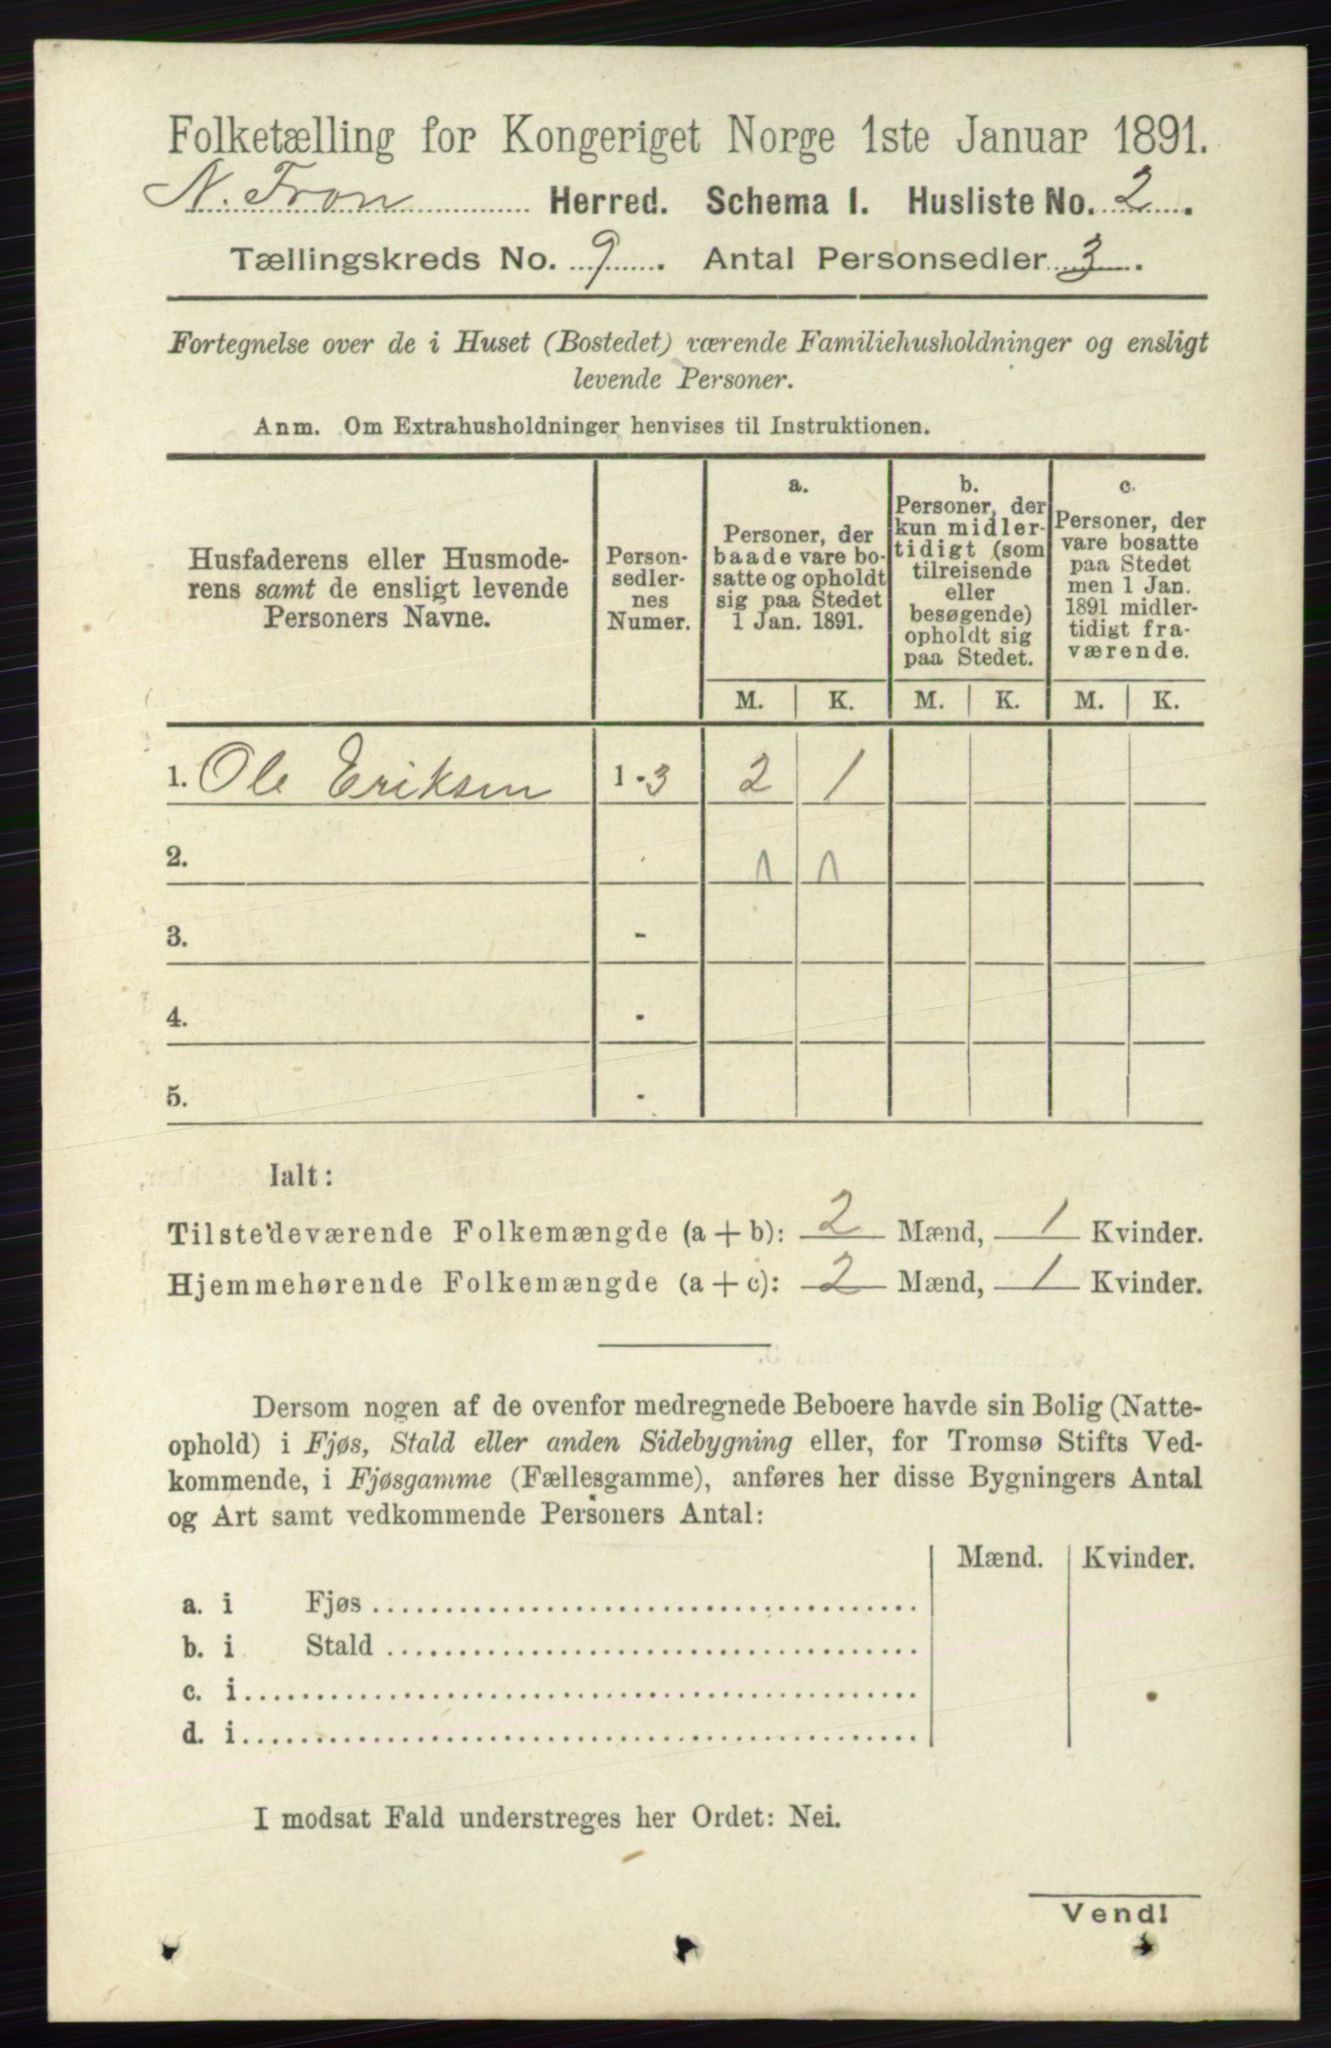 Folketælling for Kongeriget Norge 1ste Januar 1891.
N. Fron Herred. Schema 1. Husliste No. 2.
Tællingskreds No. 9. Antal Personsedler 3.
Fortegnelse over de i Huset (Bostedet) værende Familiehusholdninger og ensligt
levende Personer.
Anm. Om Extrahusholdninger henvises til Instruktionen.
Husfaderens eller Husmode-
rens samt de ensligt levende
Personers Navne.
Person-
sedler-
nes
Numer.
a.
Personer, der
baade vare bo-
satte og opholdt
sig paa Stedet
1 Jan. 1891.
b.
Personer, der
kun midler-
tidigt (som
tilreisende
eller
besøgende)
opholdt sig
paa Stedet.
c.
Personer, der
vare bosatte
paa Stedet
men 1 Jan.
1891 midler-
tidigt fra-
værende.
M. K. M. K. M. K.
1. Ole Eriksen 1-3 2 1
2.
3. -
4. -
5. -
Ialt:
Tilstedeværende Folkemængde (a + b): 2 Mænd, 1 Kvinder.
Hjemmehørende Folkemængde (a + c): 2 Mænd, 1 Kvinder.
Dersom nogen af de ovenfor medregnede Beboere havde sin Bolig (Natte-
ophold) i Fjøs, Stald eller anden Sidebygning eller, for Tromsø Stifts Ved-
kommende, i Fjøsgamme (Fællesgamme), anføres her disse Bygningers Antal
og Art samt vedkommende Personers Antal:
Mænd. Kvinder.
a. i Fjøs
b. i Stald
c. i
d. i
I modsat Fald understreges her Ordet: Nei.
Vend!